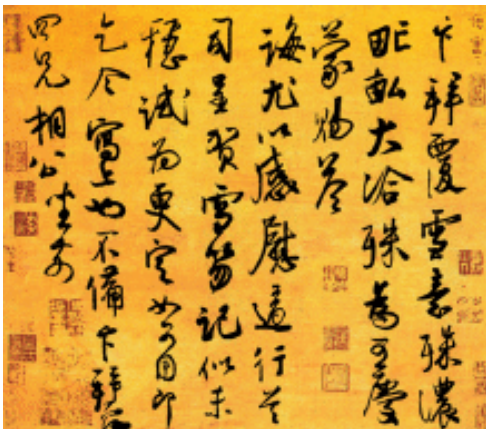 卞拜覆雪意殊濃
畎畝大洽殊為可慶
蒙賜答
誨尤以感慰適行首
司呈賀雪笏記似未
穩試為更定如可用即
乞令寫上也不備卞拜覆
四兄相公坐前